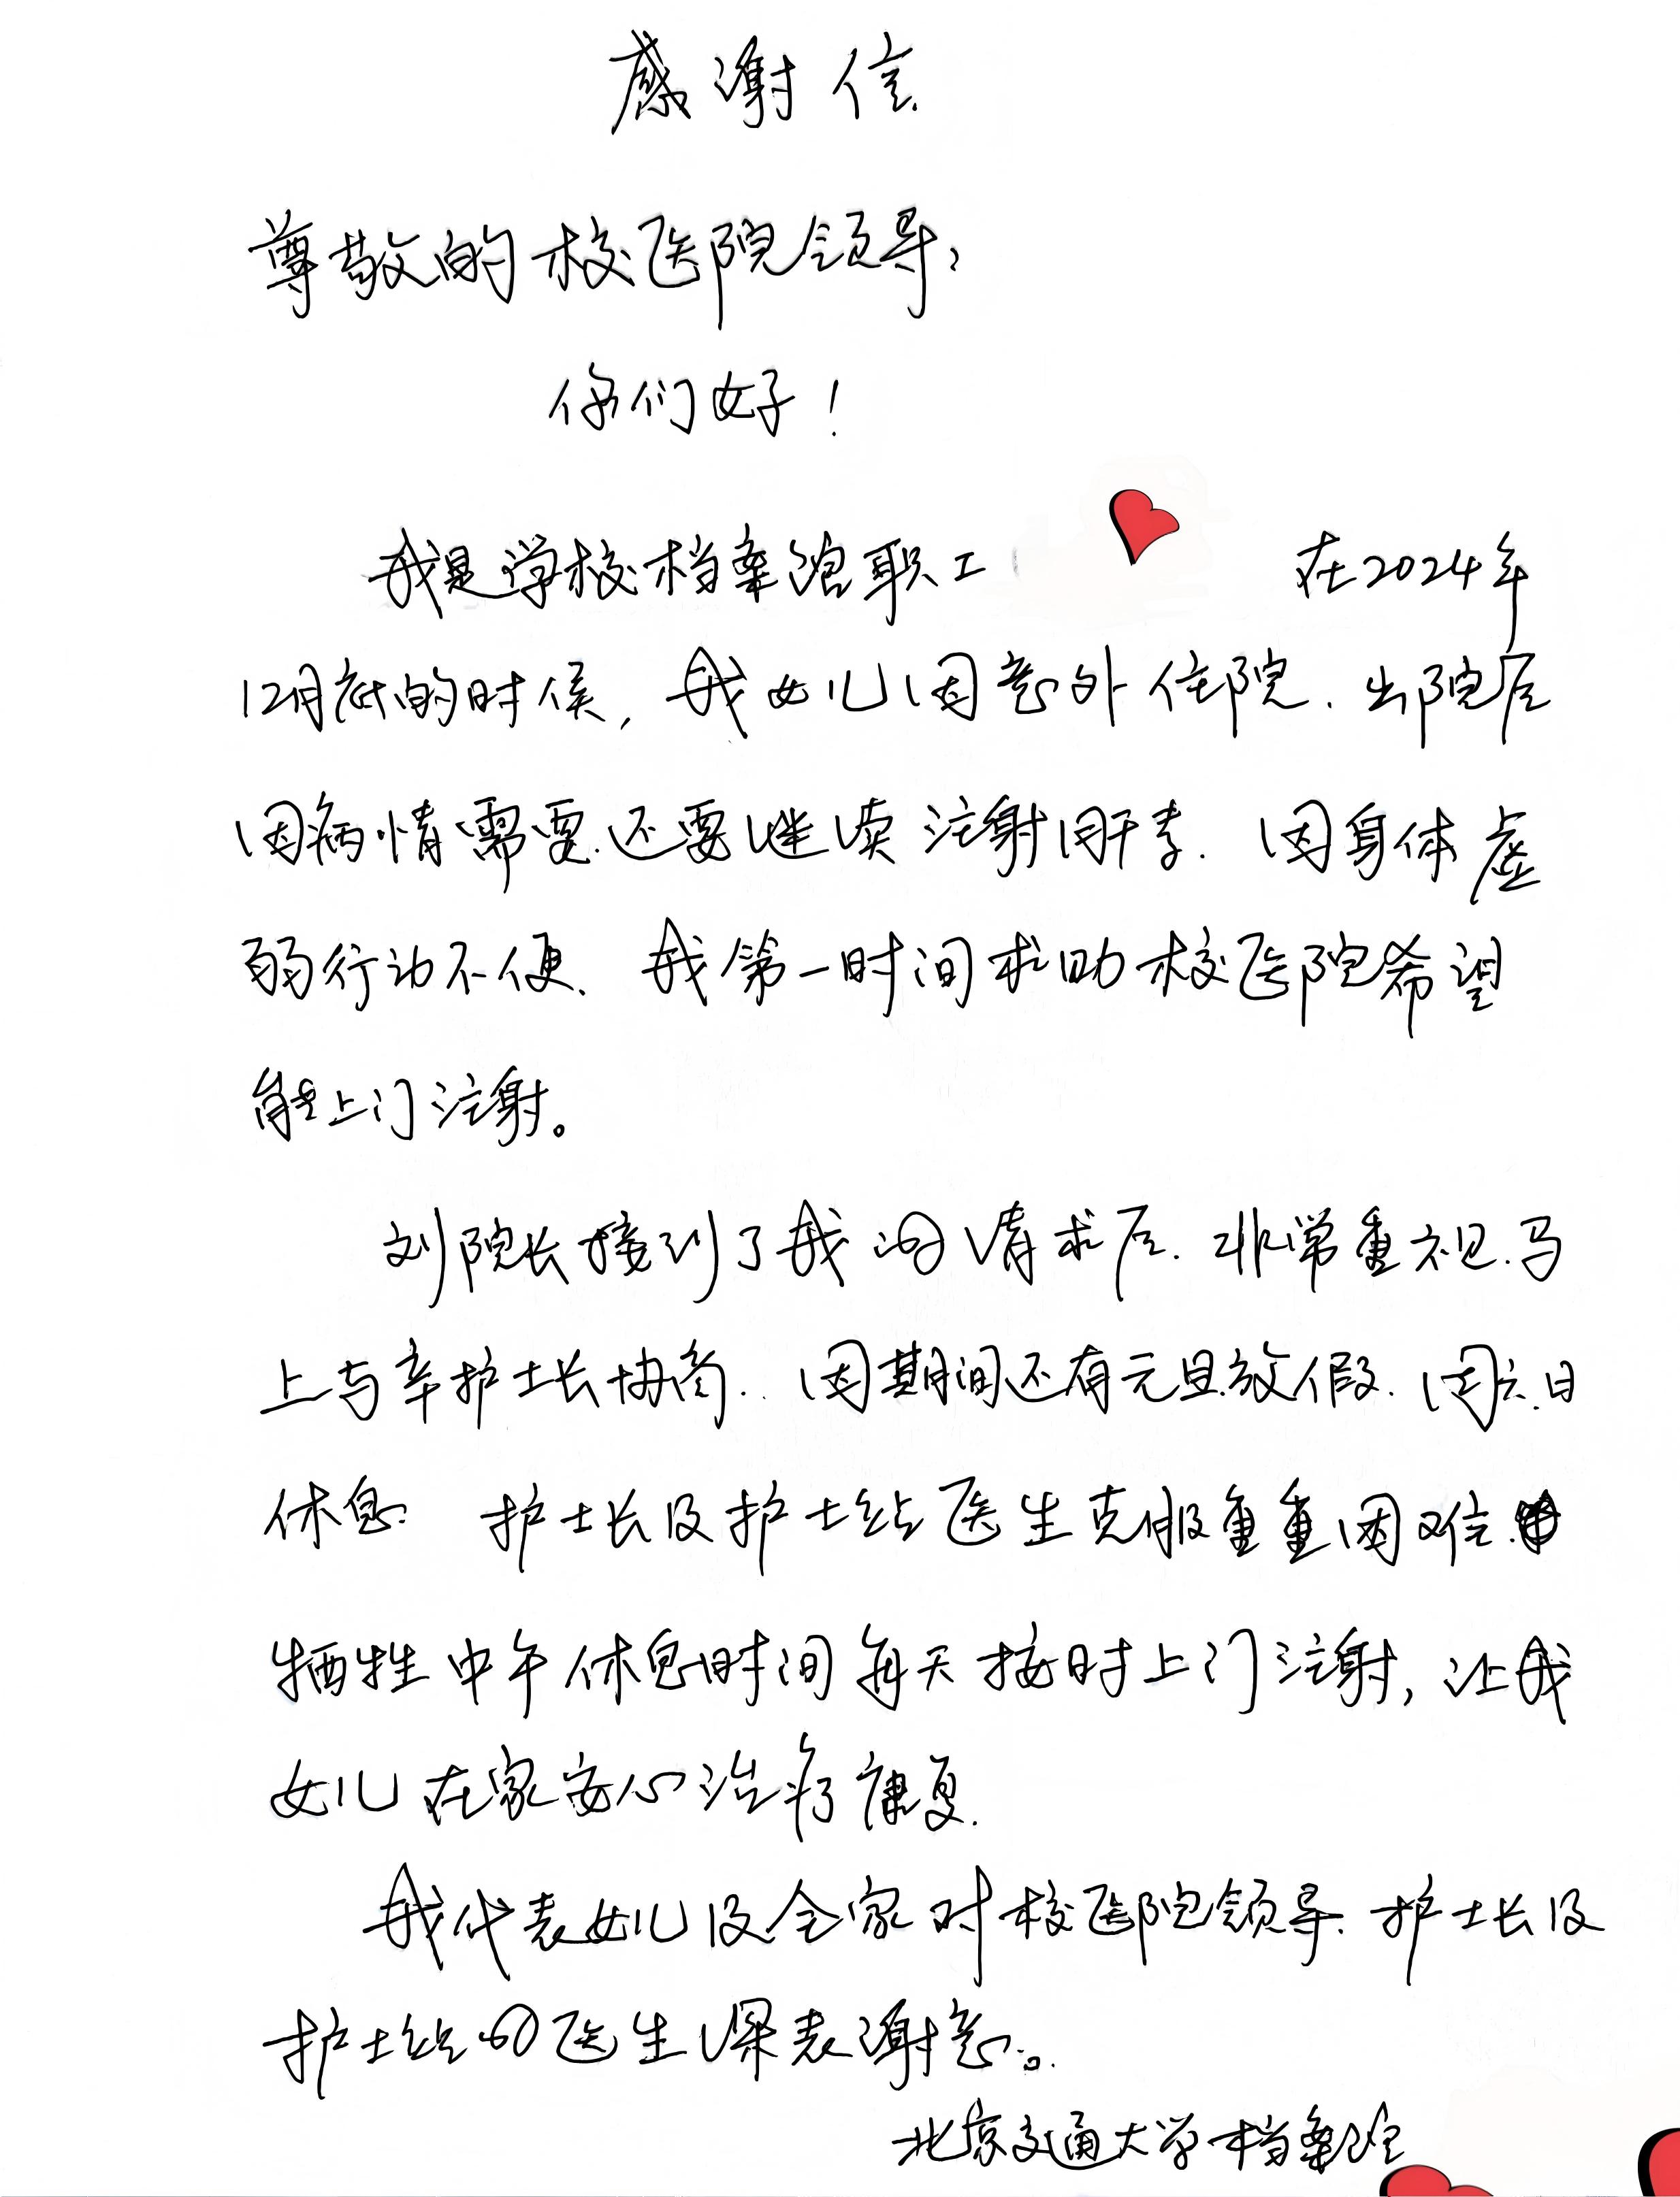 感谢信
尊敬的校医院领导：
你们好！
我是学校档案馆职工 在2024年
12月底的时候，我女儿因意外住院.出院后
因病情需要.还要继续注射肝素.因身体虚
弱行动不便.我第一时间求助校医院希望
能上门注射。
刘院长接到了我的请求后.非常重视.马
上与辛护士长协商..因期间还有元旦放假.周六.日
休息.护士长及护士站医生克服重重困难.
牺牲中午休息时间每天按时上门注射，让我
女儿在家安心治疗康复.
我代表女儿及全家对校医院领导.护士长及
护士站的医生深表谢意。
北京交通大学档案馆